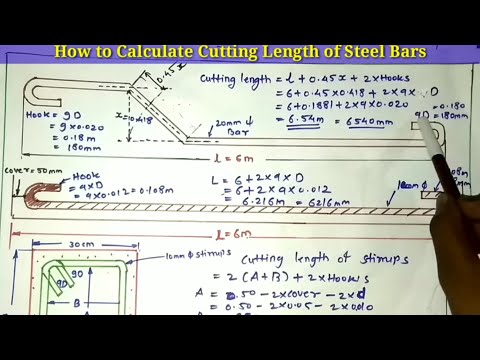 How to Calculate Cutting Length of Steel Bars
0.45x
Cutting length = l + 0.45x + 2xHooks
= 6+0.45x0.418 + 2x9x D
= 6+0.1881+2x9x0.020
= 6.54m = 6540mm
9D =0.180
=180mm
Hook = 9D
= 9x0.020
= 0.18m
= 180mm
x=0.418
20mm ϕ
Bar
l = 6m
cover=50mm
Hook
= 9xD
= 9x0.012 = 0.108m
L = 6 + 2x9xD
= 6 + 2x9x0.012
= 6.216m = 6216mm
l = 6m
30cm
10mm ϕ stirrups
9D
9D
B
Cutting length of stirrups
= 2(A+B) + 2xHooks
A = 0.50 - 2xcover - 2xd
= 0.50 - 2x0.05 - 2x0.010